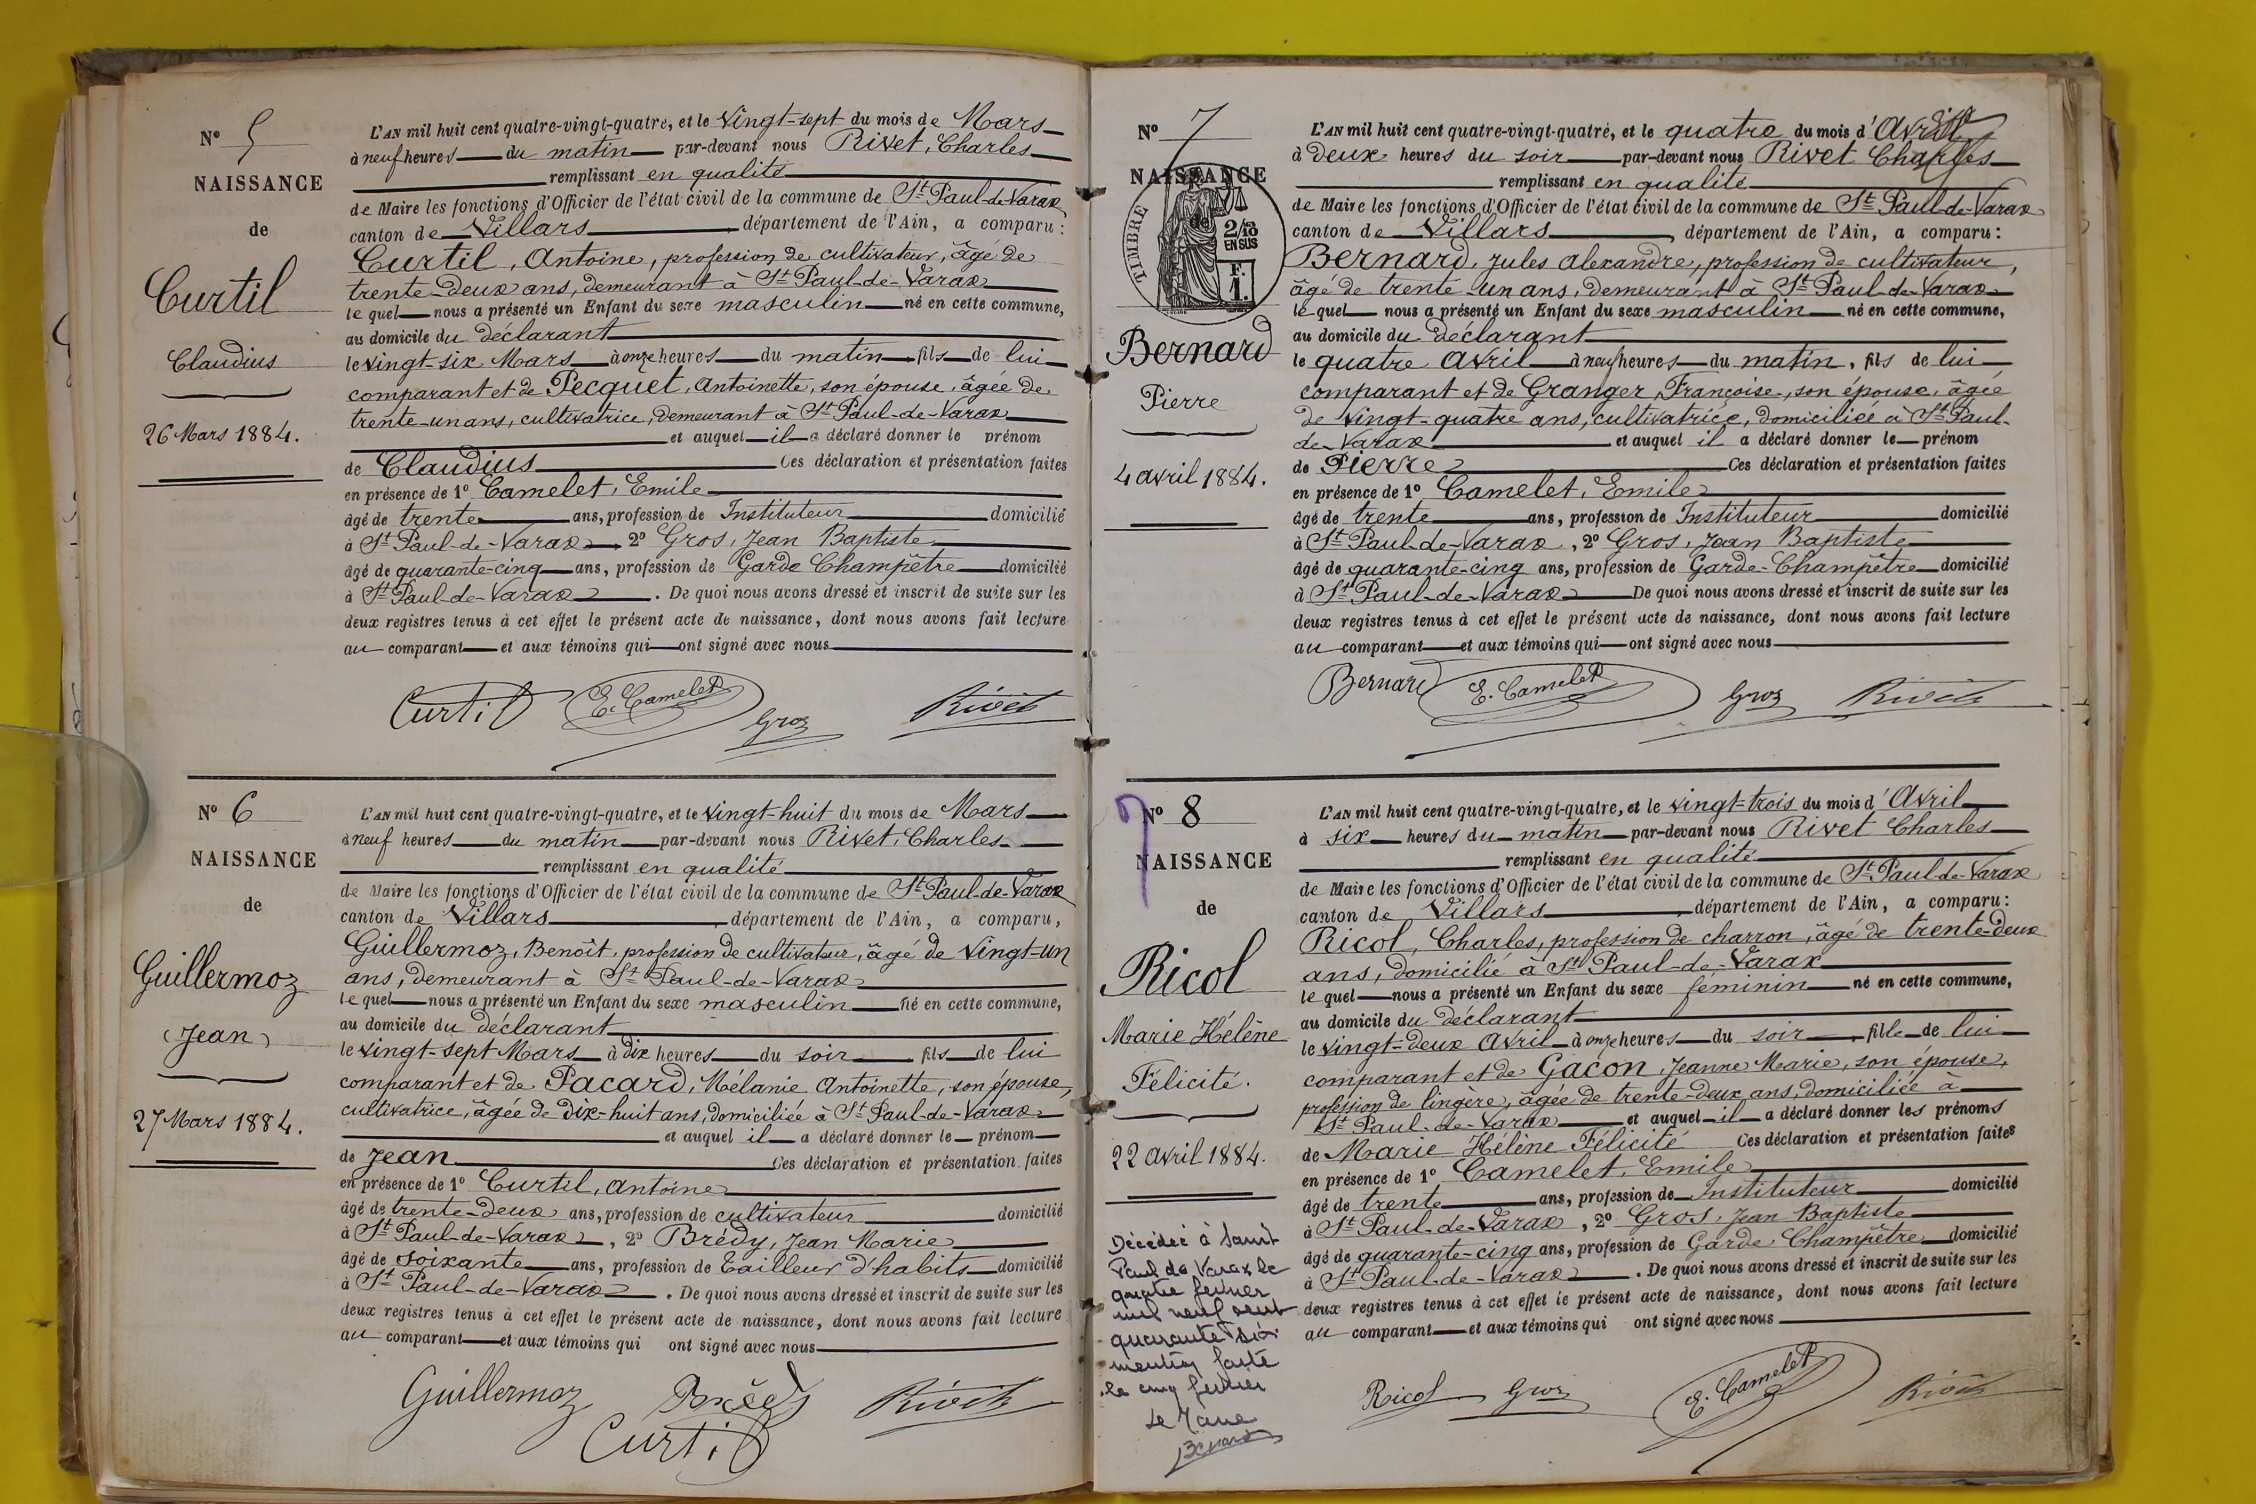 N° 5
NAISSANCE
de
Curtil
Claudius
26 Mars 1884.
L'AN mil huit cent quatre-vingt-quatre, et le Vingt-sept du mois de Mars
à neuf heures du matin par-devant nous Rivet, Charles
remplissant en qualité
de Maire les fonctions d'Officier de l'état civil de la commune de St Paul-de-Varax
canton de Villars, département de l'Ain, a comparu:
Curtil, Antoine, profession de cultivateur, âgé de
trente-deux ans, demeurant à St Paul-de-Varax
le quel nous a présenté un Enfant du sexe masculin né en cette commune,
au domicile du déclarant
le vingt-six Mars à onze heures du matin, fils de lui
comparant et de Pecquet, Antoinette, son épouse, âgée de
trente-un ans, cultivatrice, demeurant à St Paul-de-Varax
et auquel il a déclaré donner le prénom
de Claudius Ces déclaration et présentation faites
en présence de 1° Camelet, Emile
âgé de trente ans, profession de Instituteur domicilié
à St Paul-de-Varax, 2° Gros, Jean Baptiste
âgé de quarante-cinq ans, profession de Garde Champêtre domicilié
à St Paul-de-Varax. De quoi nous avons dressé et inscrit de suite sur les
deux registres tenus à cet effet le présent acte de naissance, dont nous avons fait lecture
au comparant et aux témoins qui ont signé avec nous
Curtil E. Camelet Gros Rivet
N° 6
NAISSANCE
de
Guillermoz
Jean
27 Mars 1884.
L'AN mil huit cent quatre-vingt-quatre, et le vingt-huit du mois de Mars
à neuf heures du matin par-devant nous Rivet, Charles
remplissant en qualité
de Maire les fonctions d'Officier de l'état civil de la commune de St Paul-de-Varax
canton de Villars, département de l'Ain, a comparu,
Guillermoz, Benoît, profession de cultivateur, âgé de vingt-un
ans, demeurant à St Paul-de-Varax
le quel nous a présenté un Enfant du sexe masculin né en cette commune,
au domicile du déclarant
le vingt-sept Mars à dix heures du soir, fils de lui
comparant et de Pacard, Mélanie Antoinette, son épouse,
cultivatrice, âgée de dix-huit ans, domiciliée à St Paul-de-Varax
et auquel il a déclaré donner le prénom
de Jean Ces déclaration et présentation faites
en présence de 1° Curtil, Antoine
âgé de trente-deux ans, profession de cultivateur domicilié
à St Paul-de-Varax, 2° Brédy, Jean Marie
âgé de soixante ans, profession de Tailleur d'habits domicilié
à St Paul-de-Varax. De quoi nous avons dressé et inscrit de suite sur les
deux registres tenus à cet effet le présent acte de naissance, dont nous avons fait lecture
au comparant et aux témoins qui ont signé avec nous
Guillermoz Brédy Rivet
Curtil
N° 7
NAISSANCE
de
TIMBRE
2/10
EN SUS
F.
1.
Bernard
Pierre
4 avril 1884.
L'AN mil huit cent quatre-vingt-quatre, et le quatre du mois d'Avril
à deux heures du soir par-devant nous Rivet Charles
remplissant en qualité
de Maire les fonctions d'Officier de l'état civil de la commune de St Paul-de-Varax
canton de Villars, département de l'Ain, a comparu:
Bernard, Jules Alexandre, profession de cultivateur,
âgé de trente-un ans, demeurant à St Paul-de-Varax
le quel nous a présenté un Enfant du sexe masculin né en cette commune,
au domicile du déclarant
le quatre Avril à neuf heures du matin, fils de lui
comparant et de Granger, Françoise, son épouse, âgée
de vingt-quatre ans, cultivatrice, domiciliée à St Paul-
de-Varax et auquel il a déclaré donner le prénom
de Pierre Ces déclaration et présentation faites
en présence de 1° Camelet, Emile
âgé de trente ans, profession de Instituteur domicilié
à St Paul-de-Varax, 2° Gros, Jean Baptiste
âgé de quarante-cinq ans, profession de Garde-Champêtre domicilié
à St Paul-de-Varax De quoi nous avons dressé et inscrit de suite sur les
deux registres tenus à cet effet le présent acte de naissance, dont nous avons fait lecture
au comparant et aux témoins qui ont signé avec nous
Bernard E. Camelet Gros Rivet
N° 8
NAISSANCE
de
Ricol
Marie Hélène
Félicité.
22 avril 1884.
Décédée à Saint
Paul de Varax le
quatre février
mil neuf cent
quarante six
mention faite
le cinq février
Le Maire
L'AN mil huit cent quatre-vingt-quatre, et le vingt-trois du mois d'Avril
à six heures du matin par-devant nous Rivet Charles
remplissant en qualité
de Maire les fonctions d'Officier de l'état civil de la commune de St Paul-de-Varax
canton de Villars, département de l'Ain, a comparu:
Ricol, Charles, profession de charron, âgé de trente-deux
ans, domicilié à St Paul-de-Varax
le quel nous a présenté un Enfant du sexe féminin né en cette commune,
au domicile du déclarant
le vingt-deux Avril à onze heures du soir, fille de lui
comparant et de Gacon, Jeanne Marie, son épouse,
profession de lingère, âgée de trente-deux ans, domiciliée à
St Paul-de-Varax et auquel il a déclaré donner les prénoms
de Marie Hélène Félicité Ces déclaration et présentation faites
en présence de 1° Camelet, Emile
âgé de trente ans, profession de Instituteur domicilié
à St Paul-de-Varax, 2° Gros, Jean Baptiste
âgé de quarante-cinq ans, profession de Garde Champêtre domicilié
à St Paul-de-Varax. De quoi nous avons dressé et inscrit de suite sur les
deux registres tenus à cet effet le présent acte de naissance, dont nous avons fait lecture
au comparant et aux témoins qui ont signé avec nous
Ricol Gros E. Camelet Rivet